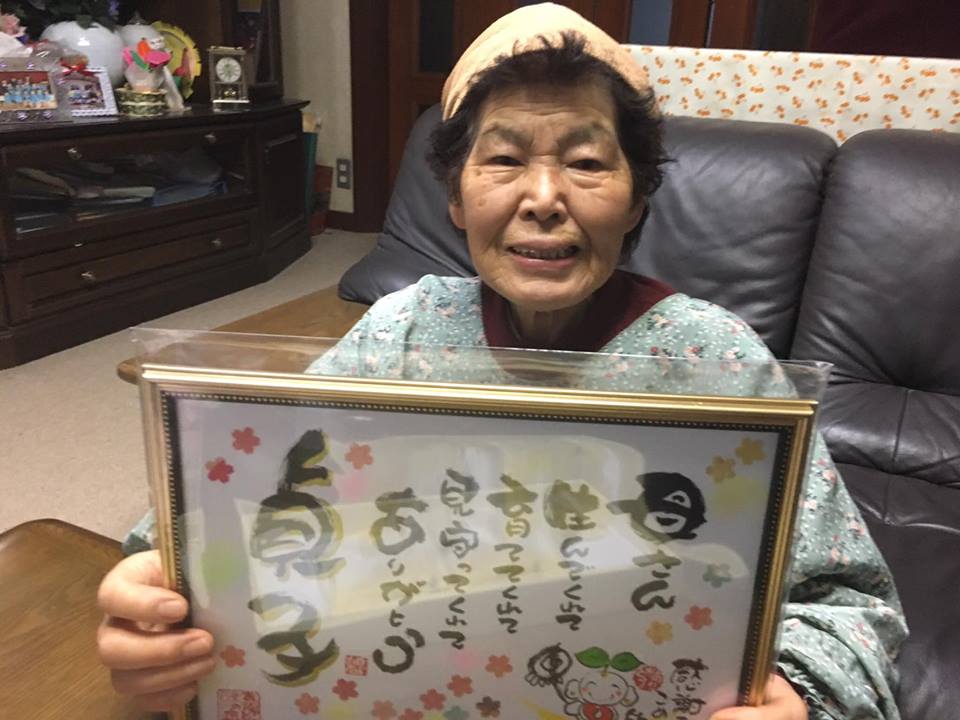 母さん
生んでくれて
育ててくれて
見守ってくれて
ありがとう
貞子
感謝
この